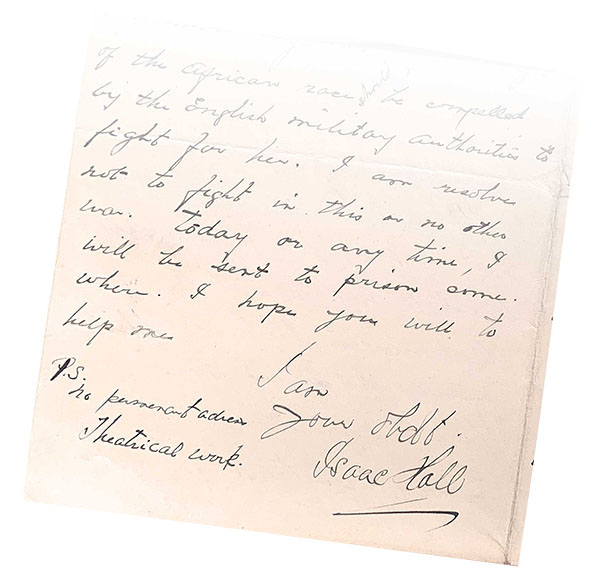 of the African race be compelled
by the English military authorities to
fight for her. I am resolve
not to fight in this or no other
war. Today or any time, I
will be sent to prison some.
where. I hope you will to
help me
I am
your obdt.
Isaac Hall
P.S.
no permenant adress
Theatrical work.